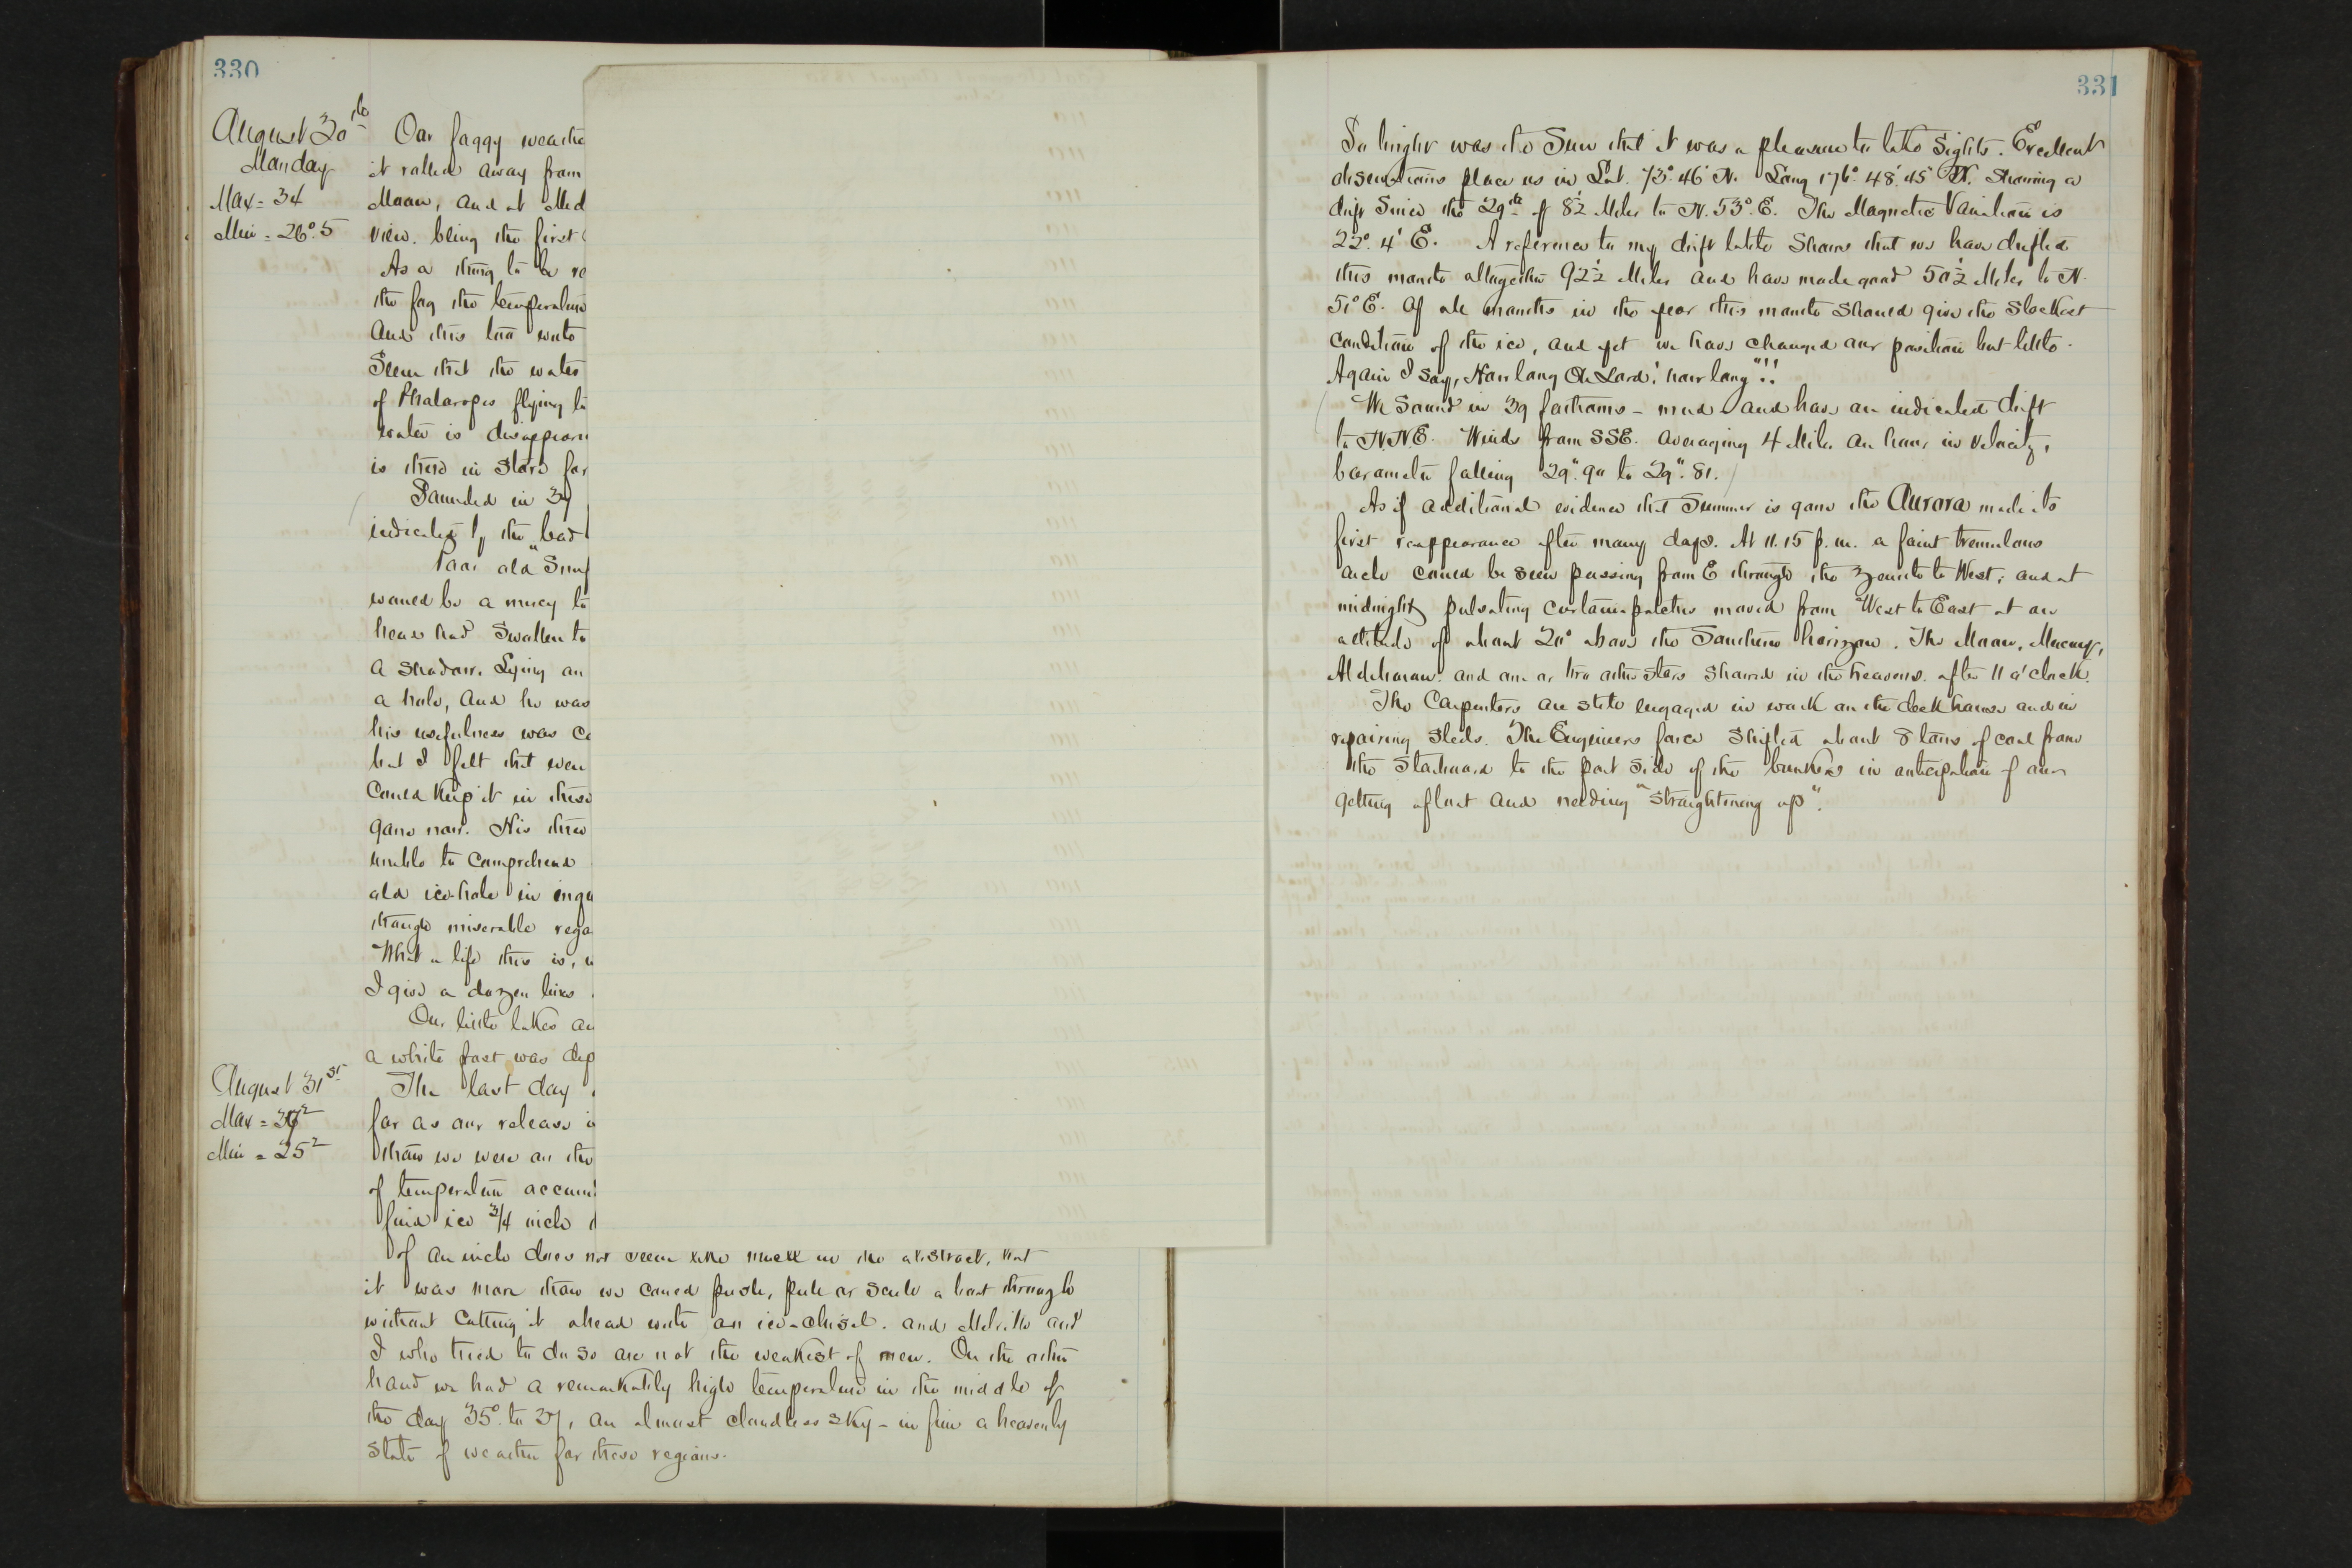 330
August 30th
Monday
Max = 34
Min = 26°.5
Our foggy weathe
it rolled away from
Moon, and at Mid
view, being the first
As a thing to be re
the fog the temperature
And this too with
Seem that the water
of Phalaropes flying to
water is disappeari
is there in store for
Sounded in 39
indicated by the lead
Poor old "Smi
would be a mercy to
head had swollen to
a shadow. Lying on
a hole, and he was
his usefulness was
but I felt that were
could keep it in these
gone now. His three
unable to comprehend
old ice-hole in inqu
though miserable rega
What a life this is,
I give a dozen lines
Our little lakes an
a white frost was dep
August 31st
Max = 37²
Min = 25²
The last day
far as our release i
than we were on the
of temperature accum
find ice 3/4 inch
of an inch does not seem like much in the abstract, but
it was more than we could push, pull or scull a boat through
without cutting it ahead with an ice-chisel. and Melville and
I who tried to do so are not the weakest of men. On the other
hand we had a remarkably high temperature in the middle of
the day 35° to 37, an almost cloudless sky - in fine a heavenly
state of weather for these regions.
331
So bright was the Sun that it was a pleasure to take sights. Excellent
observations place us in Lat. 73° 46' N. Long 176° 48' 45" W. Showing a
drift since the 29th of 8½ Miles to N. 53° E. The Magnetic Variation is
22° 4' E. A reference to my drift table shows that we have drifted
this month altogether 92½ Miles and have made good 50½ Miles to N.
51° E. Of all months in the year this month should give the slackest
condition of the ice, and yet we have changed our position but little.
Again I say, How long Oh Lord! how long"!!
We sound in 39 fathoms - mud - and have an indicated drift
to N.N.E. Winds from SSE. averaging 4 Miles an hour in velocity,
barometer falling 29".90 to 29".81.
As if additional evidence that Summer is gone the Aurora made its
first reappearance after many days. At 11.15 p.m. a faint tremulous
arch could be seen passing from E through the zenith to West; and at
midnight pulsating curtain patches moved from West to East at an
altitude of about 20° above the Southern horizon. The Moon, Mercury,
Aldebaran and one or two other stars showed in the heavens after 11 o'clock.
The Carpenters are still engaged in work on the deck house and in
repairing sleds. The Engineers force shifted about 8 tons of coal from
the starboard to the port side of the bunkers in anticipation of our
getting afloat and needing "straightening up".